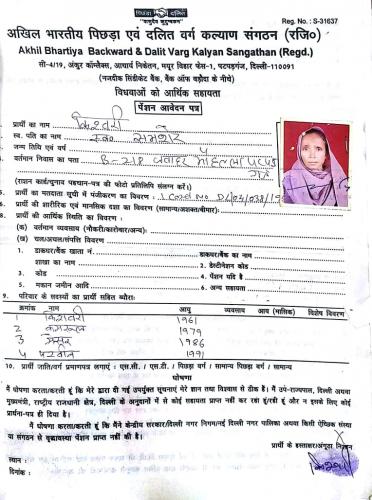 पिछड़ा दलित
"वसुधैव कुटुम्बकम्"
Reg. No.: S-31637
अखिल भारतीय पिछड़ा एवं दलित वर्ग कल्याण संगठन (रजि०)
Akhil Bhartiya Backward & Dalit Varg Kalyan Sangathan (Regd.)
सी-4/19, अंकुर कॉम्प्लैक्स, आचार्य निकेतन, मयूर विहार फेस-1, पटपड़गंज, दिल्ली-110091
(नजदीक सिंडीकेट बैंक, बैंक ऑफ बड़ौदा के नीचे)
विधवाओं को आर्थिक सहायता
पेंशन आवेदन पत्र
प्रार्थी का नाम किश्वरी
स्व. पति का नाम स्व० समशेर
जन्म तिथि एवं वर्ष
वर्तमान निवास का पता B-218 जवाहर मोहल्ला
(राशन कार्ड/चुनाव पहचान-पत्र की फोटो प्रतिलिपि संलग्न करें।)
5. प्रार्थी का मतदाता सूची में पंजीकरण का विवरण: I Card No DL/03/038/
प्रार्थी की शारीरिक एवं मानसिक दशा का विवरण (सामान्य/अशक्त/बीमार):
8. प्रार्थी की आर्थिक स्थिति का विवरण:
(क) वर्तमान व्यवसाय (नौकरी/कारोबार/अन्य):
(ख) चल/अचल/संपत्ति विवरण
1. डाकघर/बैंक खाता नं. डाकघर/बैंक का नाम
शाखा का नाम 2. डेस्टीनेशन कोड
3. कोड 4. पेंशन यदि है
5. मकान जमीन आदि 6. अन्य सहायता
9. परिवार के सदस्यों का प्रार्थी सहित ब्यौरा:
क्रमांक नाम आयु व्यवसाय आय (मासिक) विशेष विवरण
1 किश्वरी 1961
2 1979
3 1986
4 परवीन 1991
10. प्रार्थी जाति/वर्ग प्रमाणपत्र लगाएं: एस.सी. / एस.टी. / पिछड़ा वर्ग / सामान्य पिछड़ा वर्ग / सामान्य
घोषणा
मैं घोषणा करता/करती हूं कि मेरे द्वारा दी गई उपर्युक्त सूचनाएं मेरे ज्ञान तथा विश्वास से ठीक है। मैं उप-राज्यपाल, दिल्ली अथवा
मुख्यमंत्री, राष्ट्रीय राजधानी क्षेत्र, दिल्ली के अनुदानों में से कोई सहायता प्राप्त नहीं कर रहा हूं/रही हूं और न इसके लिए कोई
प्रार्थना-पत्र ही दिया है।
मैं घोषणा करता/करती हूं कि मैंने केन्द्रीय सरकार/दिल्ली नगर निगम/नई दिल्ली नगर पालिका अथवा किसी ऐच्छिक संस्था
या संगठन से वृद्धावस्था पेंशन प्राप्त नहीं की है।
प्रार्थी के हस्ताक्षर/अंगूठा निशान
स्थान:
दिनांक: किश्वरी